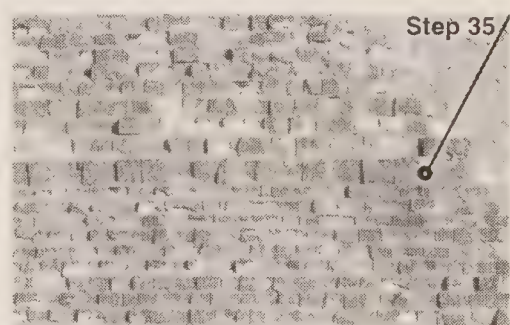 Step 35